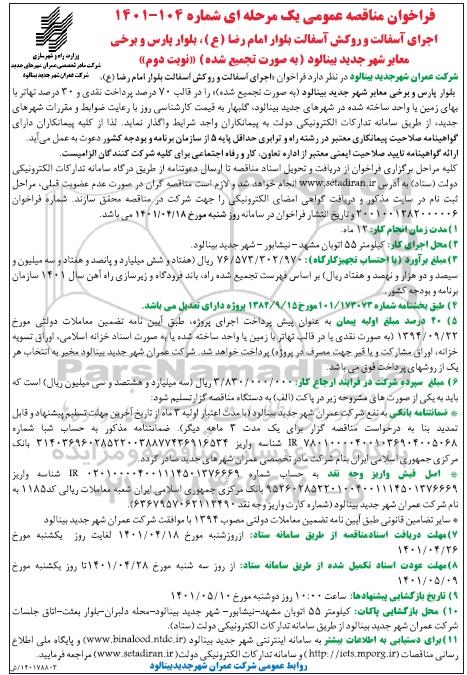 فراخوان مناقصه عمومی یک مرحله ای شماره ۱۰۴-۱۴۰۱
اجرای آسفالت و روکش آسفالت بلوار امام رضا (ع)، بلوار پارس و برخی
معابر شهر جدید بینالود (به صورت تجمیع شده) «نوبت دوم»
وزارت راه و شهرسازی
شرکت مادر تخصصی عمران شهرهای جدید
شرکت عمران شهر جدید بینالود
شرکت عمران شهر جدید بینالود در نظر دارد فراخوان «اجرای آسفالت و روکش آسفالت بلوار امام رضا (ع)،
بلوار پارس و برخی معابر شهر جدید بینالود (به صورت تجمیع شده)» را در قالب ۷۰ درصد پرداخت نقدی و ۳۰ درصد تهاتر با
بهای زمین یا واحد ساخته شده در شهرهای جدید بینالود، گلبهار به قیمت کارشناسی روز با رعایت ضوابط و مقررات شهرهای
جدید، از طریق سامانه تدارکات الکترونیکی دولت به پیمانکاران واجد شرایط واگذار نماید. لذا از کلیه پیمانکاران دارای
گواهینامه صلاحیت پیمانکاری معتبر در رشته راه و ترابری حداقل پایه ۵ از سازمان برنامه و بودجه کشور دعوت به عمل می‌آید.
ارائه گواهینامه تایید صلاحیت ایمنی معتبر از اداره تعاون، کار و رفاه اجتماعی برای کلیه شرکت کنندگان الزامیست.
کلیه مراحل برگزاری فراخوان از دریافت و تحویل اسناد مناقصه تا ارسال دعوتنامه از طریق درگاه سامانه تدارکات الکترونیکی
دولت (ستاد) به آدرس www.setadiran.ir انجام خواهد شد و لازم است مناقصه گران در صورت عدم عضویت قبلی، مراحل
ثبت نام در سایت مذکور و دریافت گواهی امضای الکترونیکی را جهت شرکت در مناقصه محقق سازند. شماره فراخوان
۲۰۰۱۰۰۱۲۸۲۰۰۰۰۰۶ و تاریخ انتشار فراخوان در سامانه روز شنبه مورخ ۱۴۰۱/۰۴/۱۸ می باشد.
۱) مدت زمان انجام کار: ۱۲ ماه.
۲) محل اجرای کار: کیلومتر ۵۵ اتوبان مشهد - نیشابور - شهر جدید بینالود.
۳) مبلغ برآورد (با احتساب تجهیزکارگاه): ۷۶/۵۷۳/۳۰۲/۹۷۰ ریال (هفتاد و شش میلیارد و پانصد و هفتاد و سه میلیون و
سیصد و دو هزار و نهصد و هفتاد ریال) بر اساس فهرست تجمیع شده راه، باند فرودگاه و زیرسازی راه آهن سال ۱۴۰۱ سازمان
برنامه و بودجه کشور.
۴) طبق بخشنامه شماره ۱۰۱/۱۷۳۰۷۳ مورخ ۱۳۸۲/۹/۱۵ پروژه دارای تعدیل می باشد.
۵) ۲۰ درصد مبلغ اولیه پیمان به عنوان پیش پرداخت اجرای پروژه، طبق آیین نامه تضمین معاملات دولتی مورخ
۱۳۹۴/۰۹/۲۲ (به صورت نقدی یا در قالب تهاتر با زمین یا واحد ساخته شده یا به صورت اسناد خزانه اسلامی، اوراق تسویه
خزانه، اوراق مشارکت و یا قیر جهت مصرف در پروژه) پرداخت خواهد شد. شرکت عمران شهر جدید بینالود مخیر به انتخاب هر
یک از روشهای پرداخت فوق می باشد.
۶) مبلغ سپرده شرکت در فرایند ارجاع کار: ۳/۸۳۰/۰۰۰/۰۰۰ ریال (سه میلیارد و هشتصد و سی میلیون ریال) است که
باید به یکی از صورت های مشروحه زیر در پاکت (الف) به دستگاه مناقصه گزار تسلیم شود:
* ضمانتنامه بانکی به نفع شرکت عمران شهر جدید بینالود (با مدت اعتبار اولیه ۳ ماه از تاریخ آخرین مهلت تسلیم پیشنهاد و قابل
تمدید بنا به درخواست مناقصه گزار برای یک مدت ۳ ماهه دیگر). ضمانتنامه مذکور به حساب شبا شماره
مرکزی جمهوری اسلامی ایران بنام شرکت مادر تخصصی عمران شهرهای جدید صادر گردد.
* اصل فیش واریز وجه نقد به حساب شماره IR ۰۲۰۱۰۰۰۰۴۰۰۱۱۱۴۵۰۱۳۷۶۶۶۹ شناسه واریز
بانک مرکزی جمهوری اسلامی ایران شعبه معاملات ریالی کد ۱۱۸۵ به
نام شرکت عمران شهر جدید بینالود
* سایر تضامین قانونی طبق آیین نامه تضمین معاملات دولتی مصوب ۱۳۹۴ با موافقت شرکت عمران شهر جدید بینالود
۷) مهلت دریافت اسناد مناقصه از طریق سامانه ستاد: از روز شنبه مورخ ۱۴۰۱/۰۴/۱۸ لغایت روز یکشنبه مورخ
۱۴۰۱/۰۴/۲۶
۸) مهلت عودت اسناد تکمیل شده از طریق سامانه ستاد: از روز سه شنبه مورخ ۱۴۰۱/۰۴/۲۸ تا روز یکشنبه مورخ
۱۴۰۱/۰۵/۰۹
۹) تاریخ بازگشایی پیشنهادها: ساعت ۱۰:۰۰ روز دوشنبه مورخ ۱۴۰۱/۰۵/۱۰
۱۰) محل بازگشایی پاکات: کیلومتر ۵۵ اتوبان مشهد-نیشابور- شهر جدید بینالود-محله دلبران-بلوار بعثت-اتاق جلسات
شرکت عمران شهر جدید بینالود از طریق سامانه تدارکات الکترونیکی دولت (ستاد).
۱۱) برای دستیابی به اطلاعات بیشتر به سامانه اینترنتی شهر جدید بینالود (www.binalood.ntdc.ir) و پایگاه ملی اطلاع
رسانی مناقصات (http://iets.mporg.ir) و سامانه تدارکات الکترونیکی دولت (www.setadiran.ir) مراجعه فرمایید.
روابط عمومی شرکت عمران شهر جدید بینالود
۱۴۰۱۷۸۸۰۳/ش